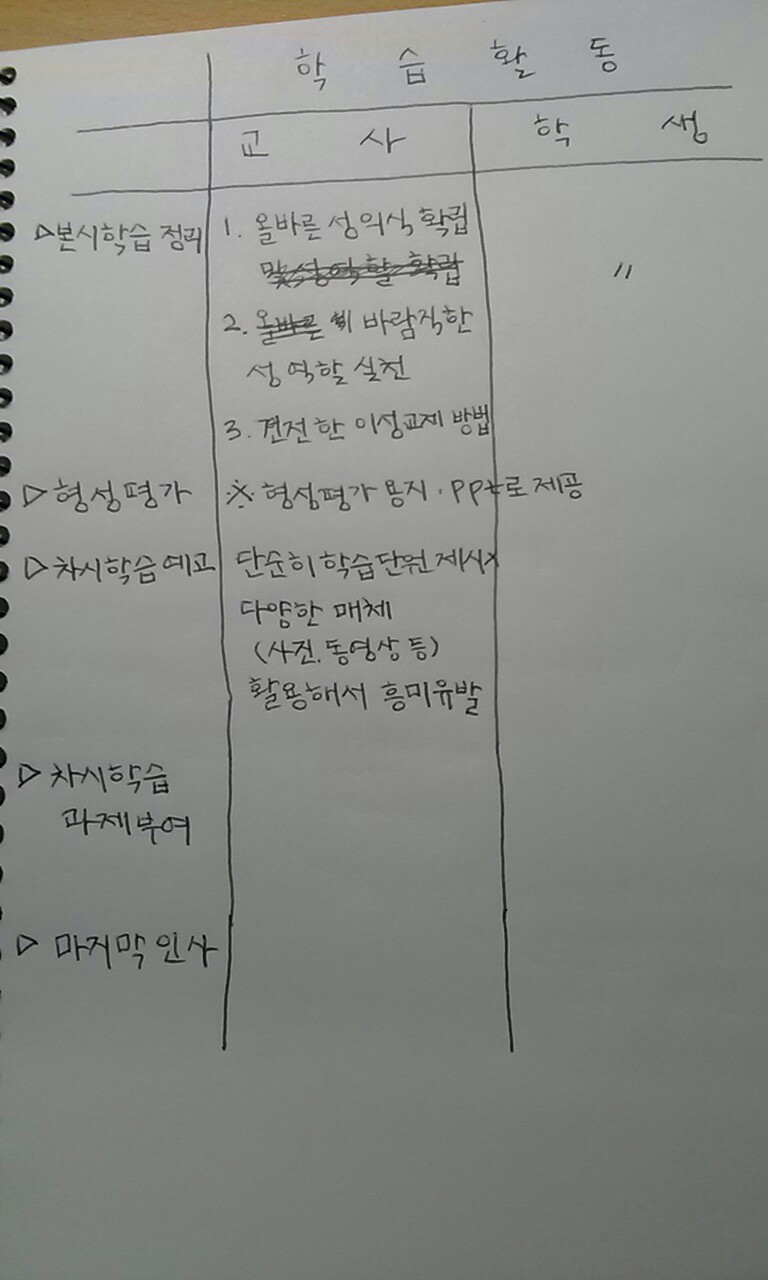 학 습 활 동
교 사 학 생
▷본시학습 정리 1. 올바른 성의식 확립
및 성역할 확립 〃
2. 올바른 바람직한
성 역할 실천
3. 건전한 이성교제 방법
▷형성평가 ※ 형성평가 용지·ppt로 제공
▷차시학습예고 단순히 학습단원 제시X
다양한 매체
(사진, 동영상 등)
활용해서 흥미유발
▷차시학습
과제부여
▷ 마지막 인사